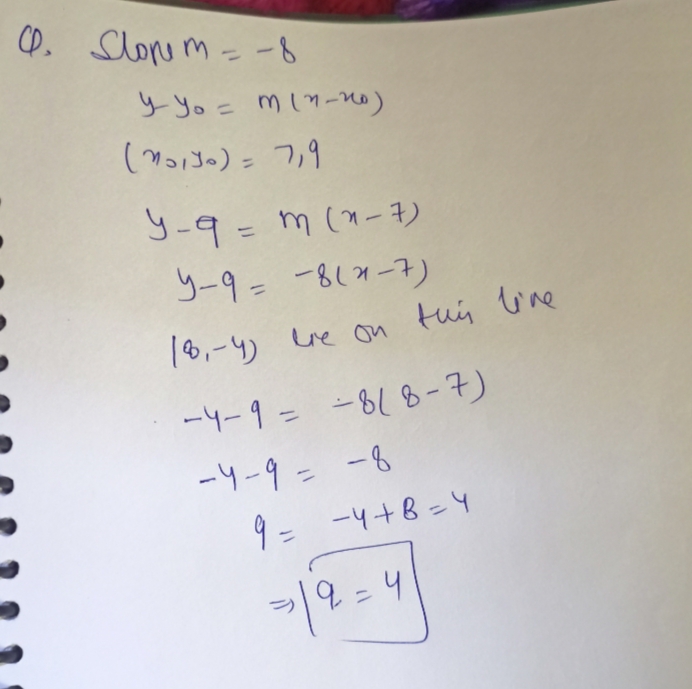 Q. Slope m = -8
y-y₀ = m(x-x₀)
(x₀,y₀) = 7,q
y-q = m(x-7)
y-q = -8(x-7)
(8,-4) lie on this line
-4-q = -8(8-7)
-4-q = -8
q = -4+8=4
⇒ q = 4